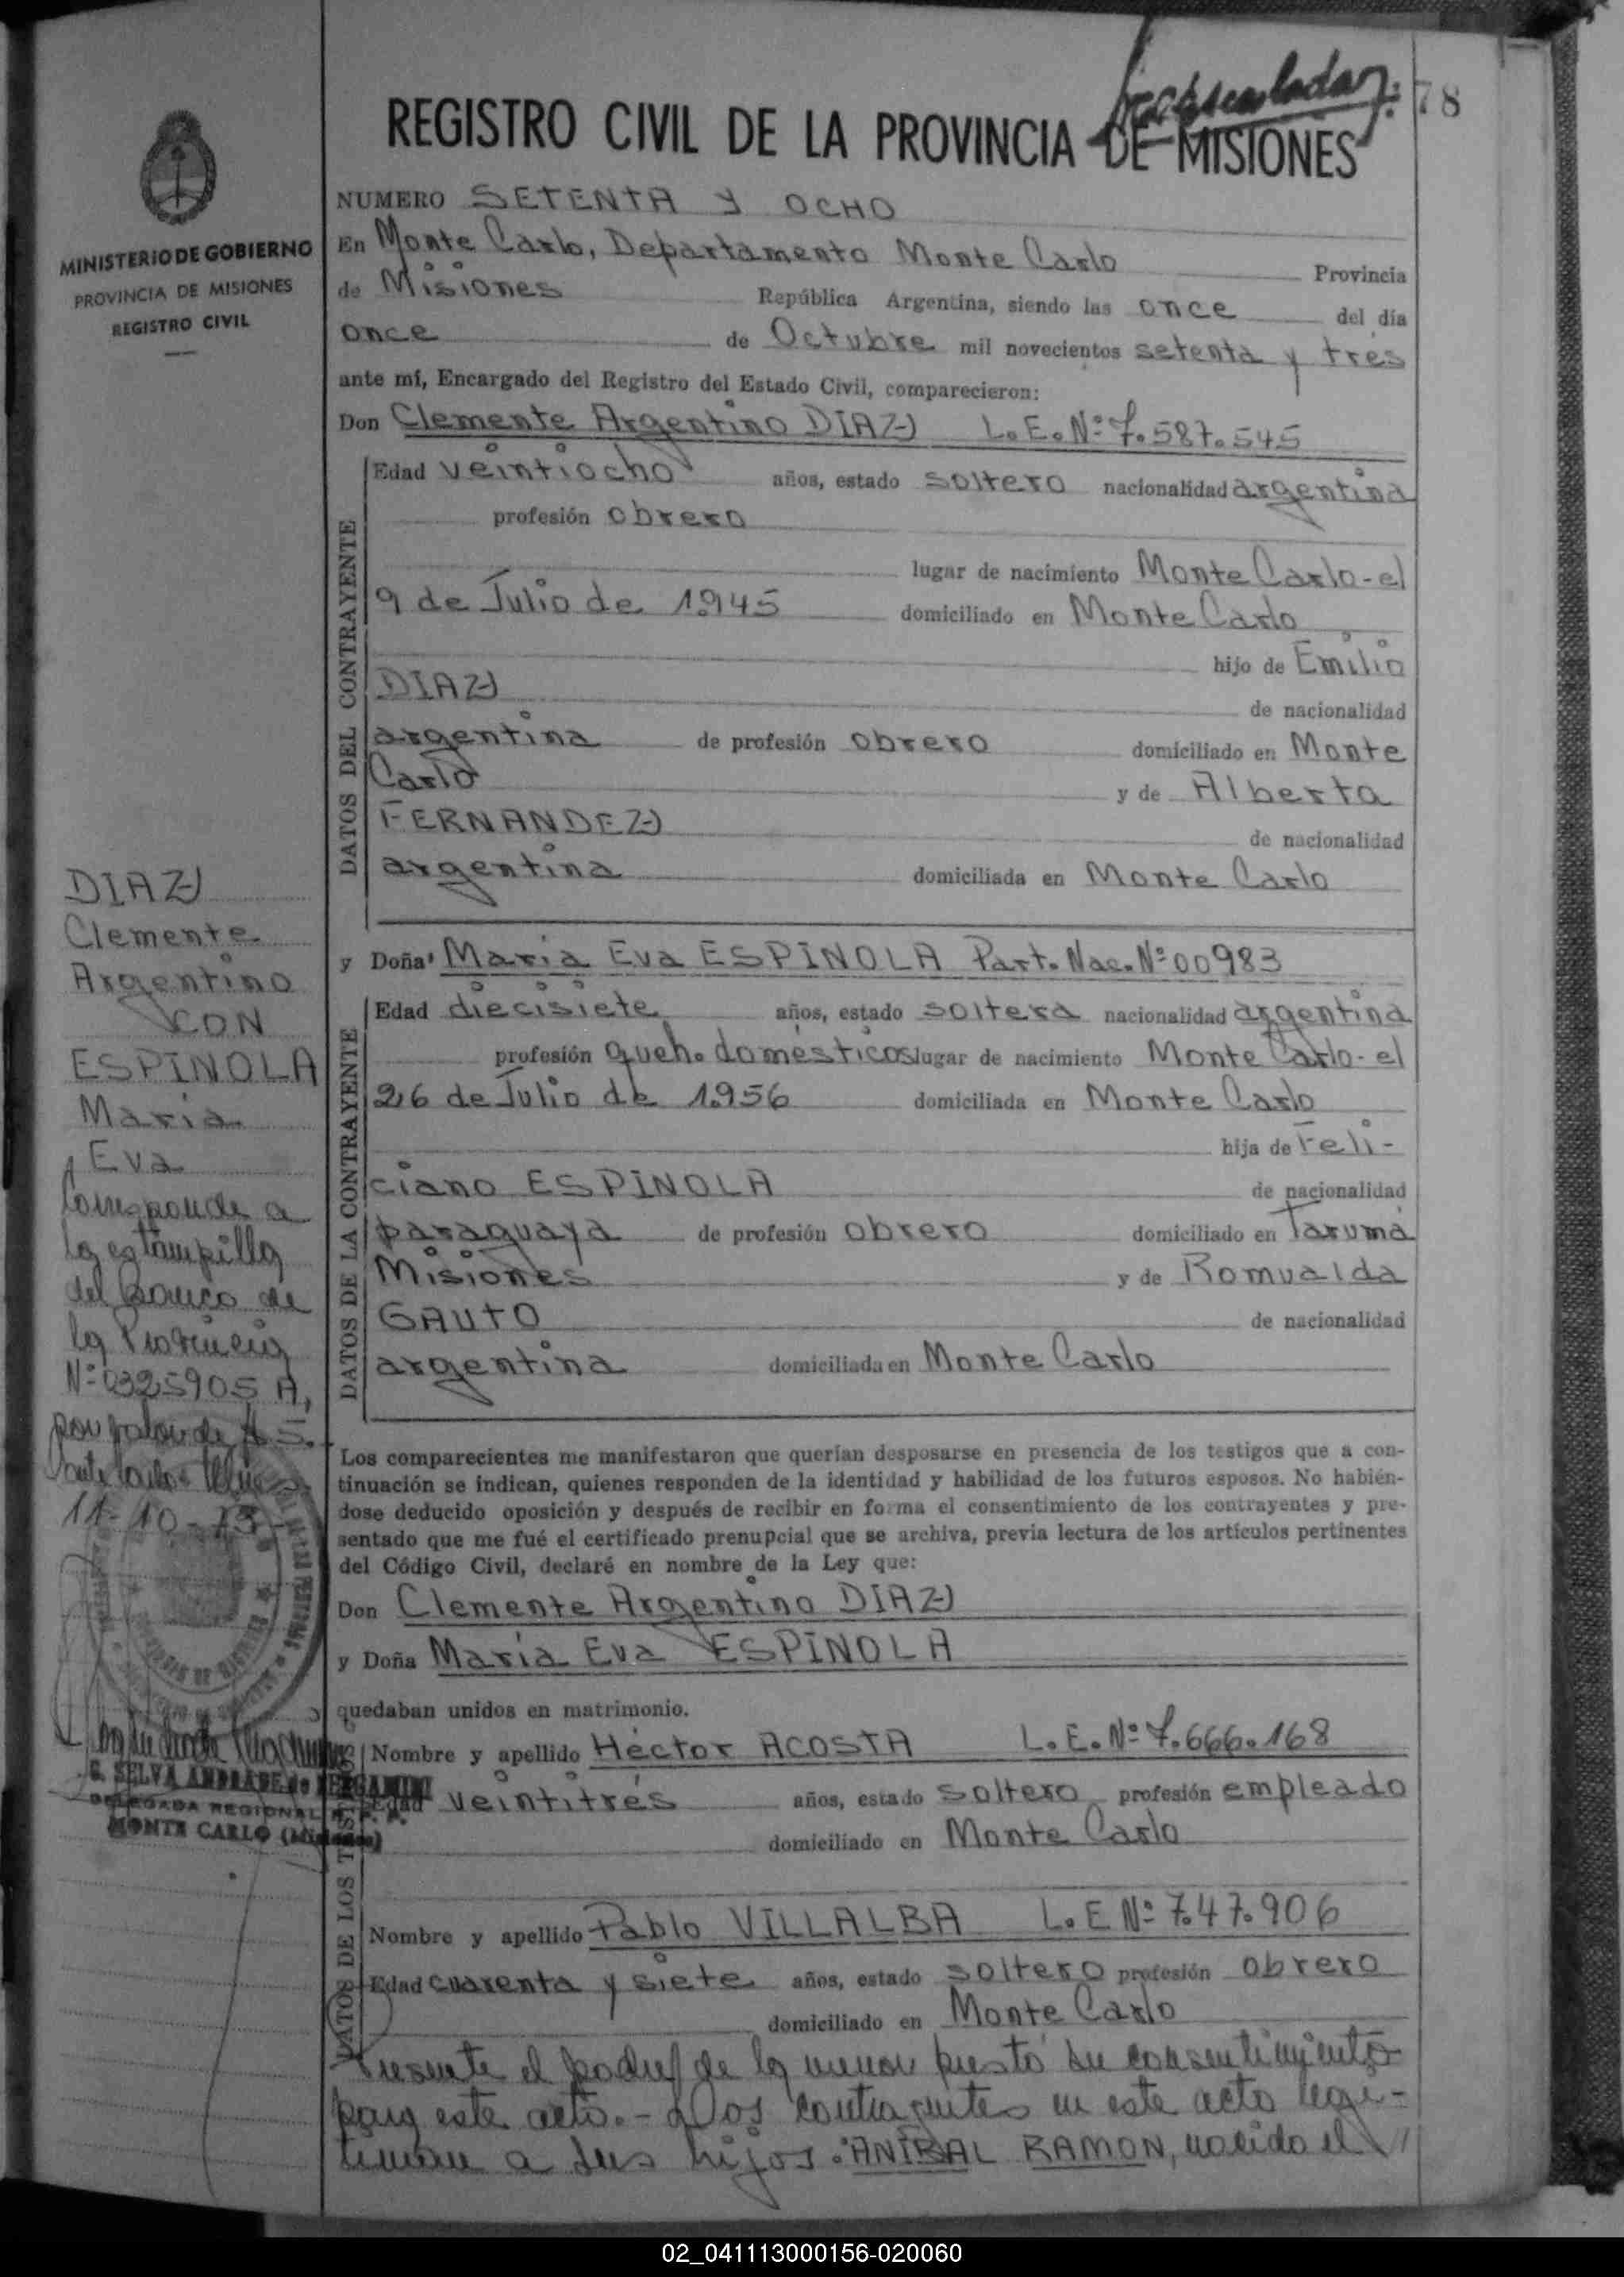 78
REGISTRO CIVIL DE LA PROVINCIA DE MISIONES
MINISTERIO DE GOBIERNO
PROVINCIA DE MISIONES
REGISTRO CIVIL
NUMERO SETENTA Y OCHO
En Monte Carlo, Departamento Monte Carlo Provincia
de Misiones República Argentina, siendo las once del día
once de Octubre mil novecientos setenta y tres
ante mí, Encargado del Registro del Estado Civil, comparecieron:
Don Clemente Argentino DIAZ L.E.Nº 7.587.545
DATOS DEL CONTRAYENTE
Edad veintiocho años, estado soltero nacionalidad argentina
profesión obrero
lugar de nacimiento Monte Carlo-el
9 de Julio de 1.945 domiciliado en Monte Carlo
hijo de Emilio
DIAZ de nacionalidad
argentina de profesión obrero domiciliado en Monte
Carlo y de Alberta
FERNANDEZ de nacionalidad
argentina domiciliada en Monte Carlo
DIAZ
Clemente
Argentino
CON
ESPINOLA
Maria
Eva
Corresponde a
la estampilla
del Banco de
la Provincia
Nº 0325905 A,
por valor de $ 5.
11-10-73
y Doña María Eva ESPINOLA Part. Nac. Nº 00983
DATOS DE LA CONTRAYENTE
Edad diecisiete años, estado soltera nacionalidad argentina
profesión queh. domésticos lugar de nacimiento Monte Carlo-el
26 de Julio de 1.956 domiciliada en Monte Carlo
hija de Feli-
ciano ESPINOLA de nacionalidad
paraguaya de profesión obrero domiciliado en Tarumá
Misiones y de Romualda
GAUTO de nacionalidad
argentina domiciliada en Monte Carlo
Los comparecientes me manifestaron que querían desposarse en presencia de los testigos que a con-
tinuación se indican, quienes responden de la identidad y habilidad de los futuros esposos. No habién-
dose deducido oposición y después de recibir en forma el consentimiento de los contrayentes y pre-
sentado que me fué el certificado prenupcial que se archiva, previa lectura de los artículos pertinentes
del Código Civil, declaré en nombre de la Ley que:
Don Clemente Argentino DIAZ
y Doña María Eva ESPINOLA
quedaban unidos en matrimonio.
G. SELVA ANDRADE de BERGAMINI
DELEGADA REGIONAL
MONTE CARLO (Misiones)
DATOS DE LOS
Nombre y apellido Héctor ACOSTA L.E.Nº 7.666.168
Edad veintitrés años, estado soltero profesión empleado
domiciliado en Monte Carlo
Nombre y apellido Pablo VILLALBA L.E Nº 7.47.906
Edad cuarenta y siete años, estado soltero profesión obrero
domiciliado en Monte Carlo
Presente el padre de la menor prestó su consentimiento
para este acto.- Los contrayentes en este acto legi-
timan a sus hijos: ANIBAL RAMON, nacido el
02_041113000156-020060